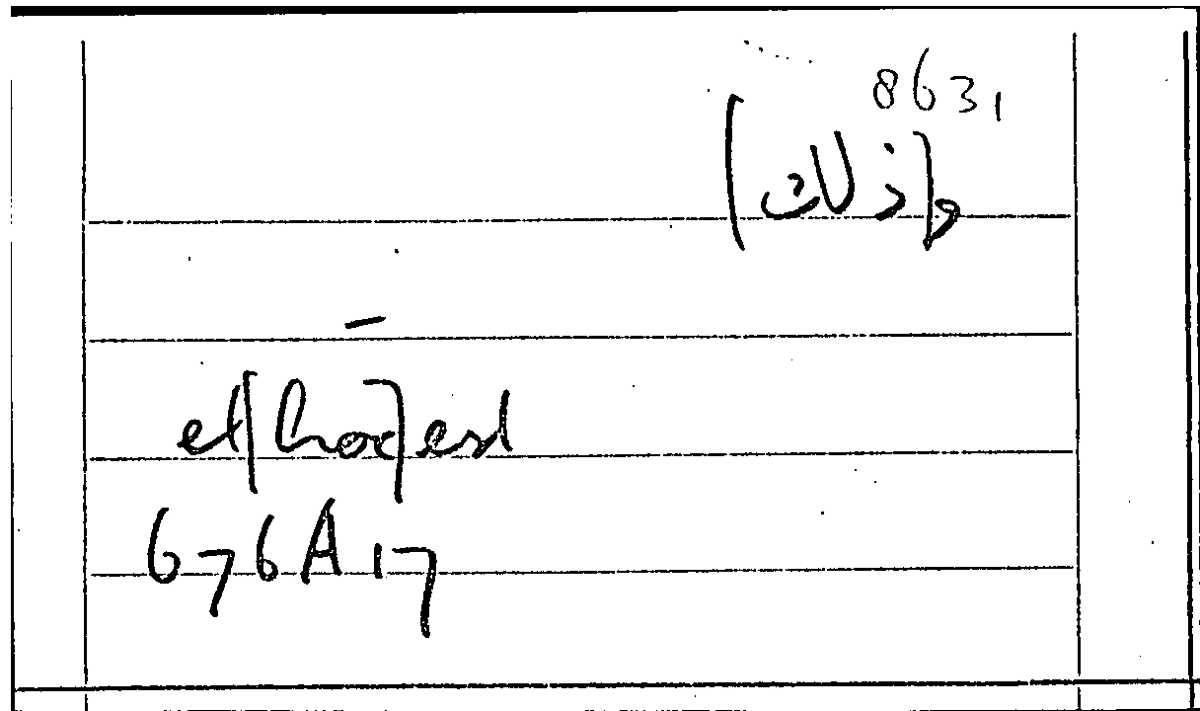 8631
و[ذلك]
et [hoc] est
676A17